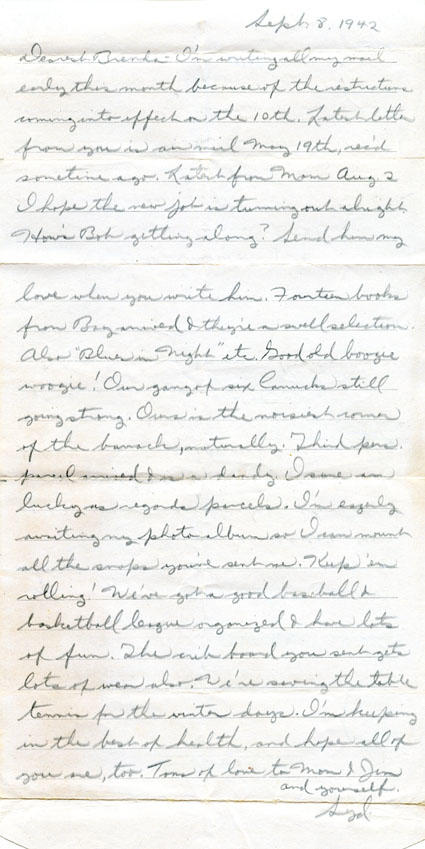 Sept. 8, 1942
Dearest Brenda - I'm writing all my mail
early this month because of the restrictions
coming into effect on the 10th. Latest letter
from you is air mail May 19th, rec'd
sometime ago. Latest from Mom Aug. 2
I hope the new job is turning out alright.
How's Bob getting along? Send him my
love when you write him. Fourteen books
from Bay arrived & they're a swell selection.
Also "Blues in Night" etc. Good old boogie
woogie! Our gang of six Canucks still
going strong. Ours is the noisiest corner
of the barrack, naturally! Third pers.
parcel arrived & is a dandy. I sure am
lucky as regards parcels. I'm eagerly
awaiting my photo album so I can mount
all the snaps you've sent me. Keep 'em
rolling! We've got a good baseball &
basketball league organized & have lots
of fun. The crib board you sent gets
lots of wear also. We're saving the table
tennis for the winter days. I'm keeping
in the best of health, and hope all of
you are, too. Tons of love to Mom & Jim
and yourself.
Syd